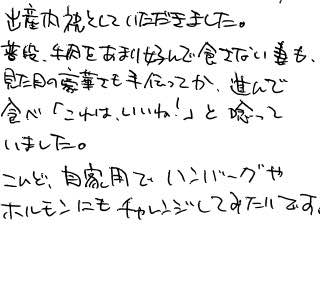 出産内祝としていただきました。
普段、牛肉をあまり好んで食さない妻も、
見た目の豪華さも手伝ってか、進んで
食べ「これは、いいね!」と唸って
いました。
こんど、自家用で ハンバーグや
ホルモンにもチャレンジしてみたいです。